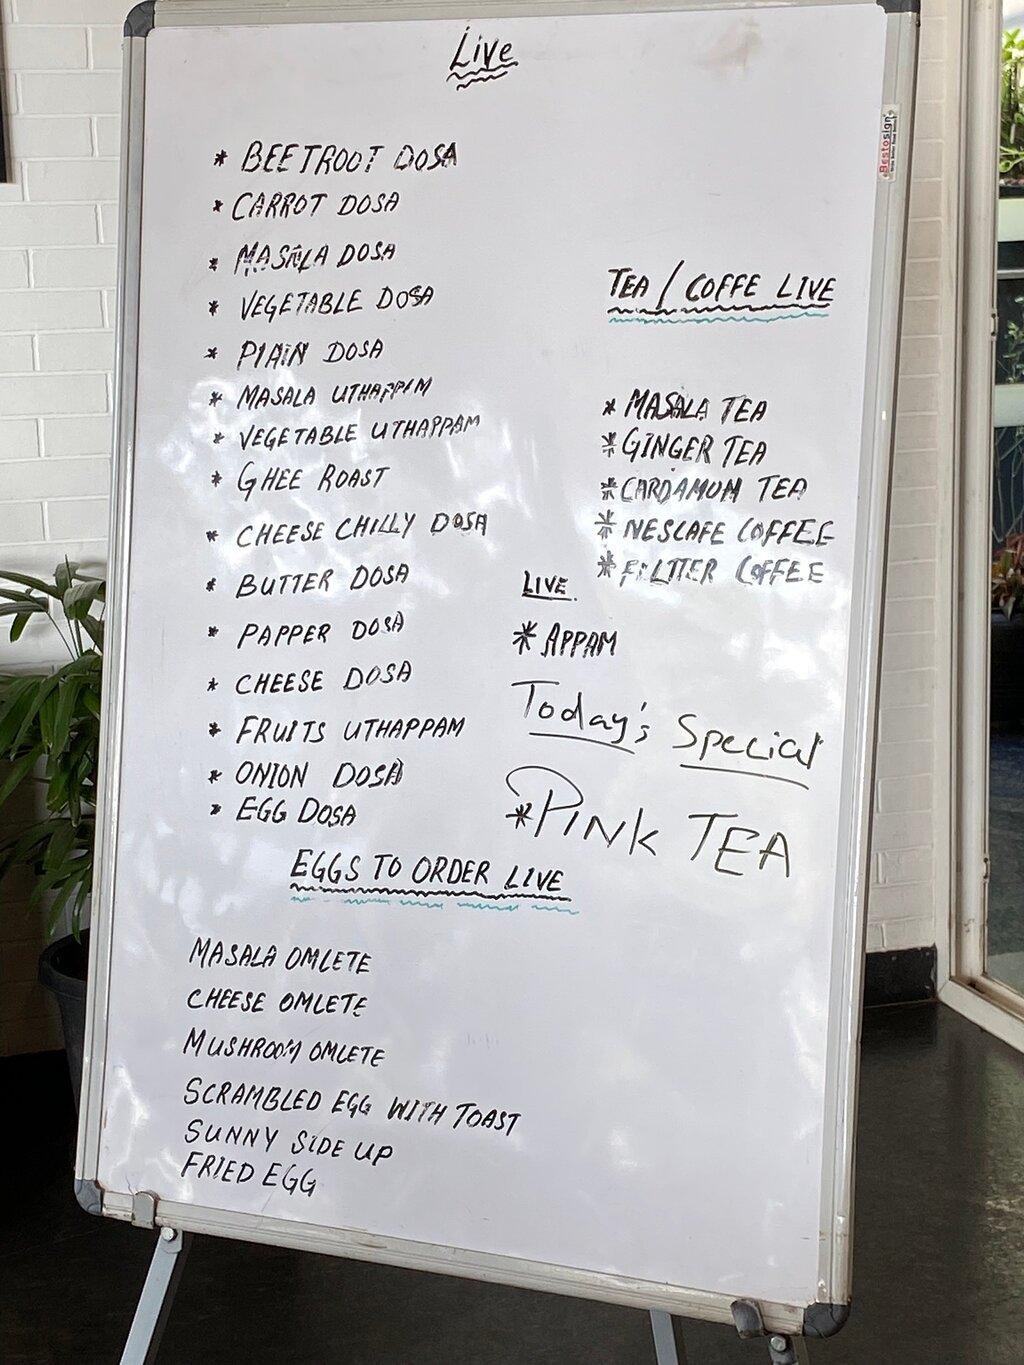 Live
* BEETROOT DOSA
* CARROT DOSA
* MASALA DOSA
* VEGETABLE DOSA
* PLAIN DOSA
* MASALA UTHAPPAM
* VEGETABLE UTHAPPAM
* GHEE ROAST
* CHEESE CHILLY DOSA
* BUTTER DOSA
* PAPPER DOSA
* CHEESE DOSA
* FRUITS UTHAPPAM
* ONION DOSA
* EGG DOSA
EGGS TO ORDER LIVE
MASALA OMLETE
CHEESE OMLETE
MUSHROOM OMLETE
SCRAMBLED EGG WITH TOAST
SUNNY SIDE UP
FRIED EGG
Bestosign
TEA / COFFE LIVE
* MASALA TEA
* GINGER TEA
* CARDAMOM TEA
* NESCAFE COFFEE
* FILTTER COFFEE
LIVE.
* APPAM
Today's Special
* PINK TEA